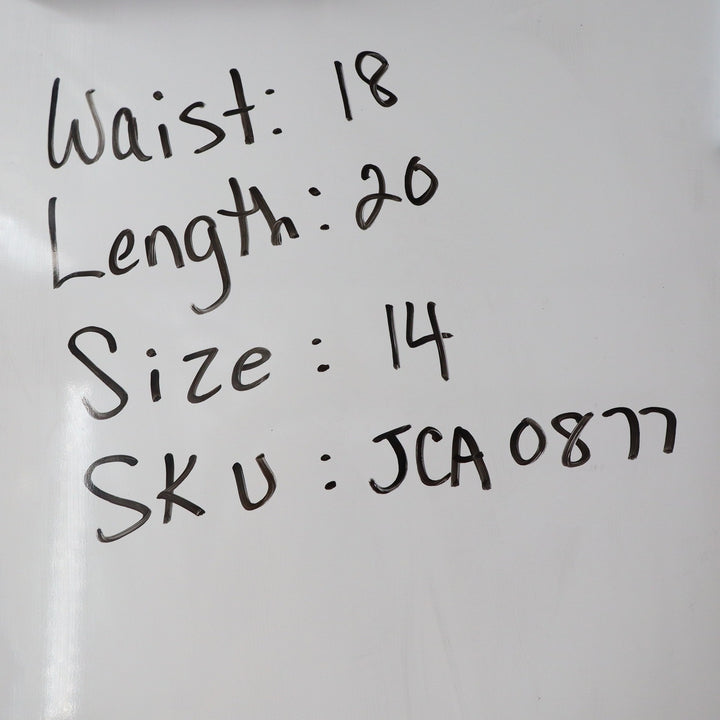 Waist: 18
Length: 20
Size: 14
SKU: JCA0877